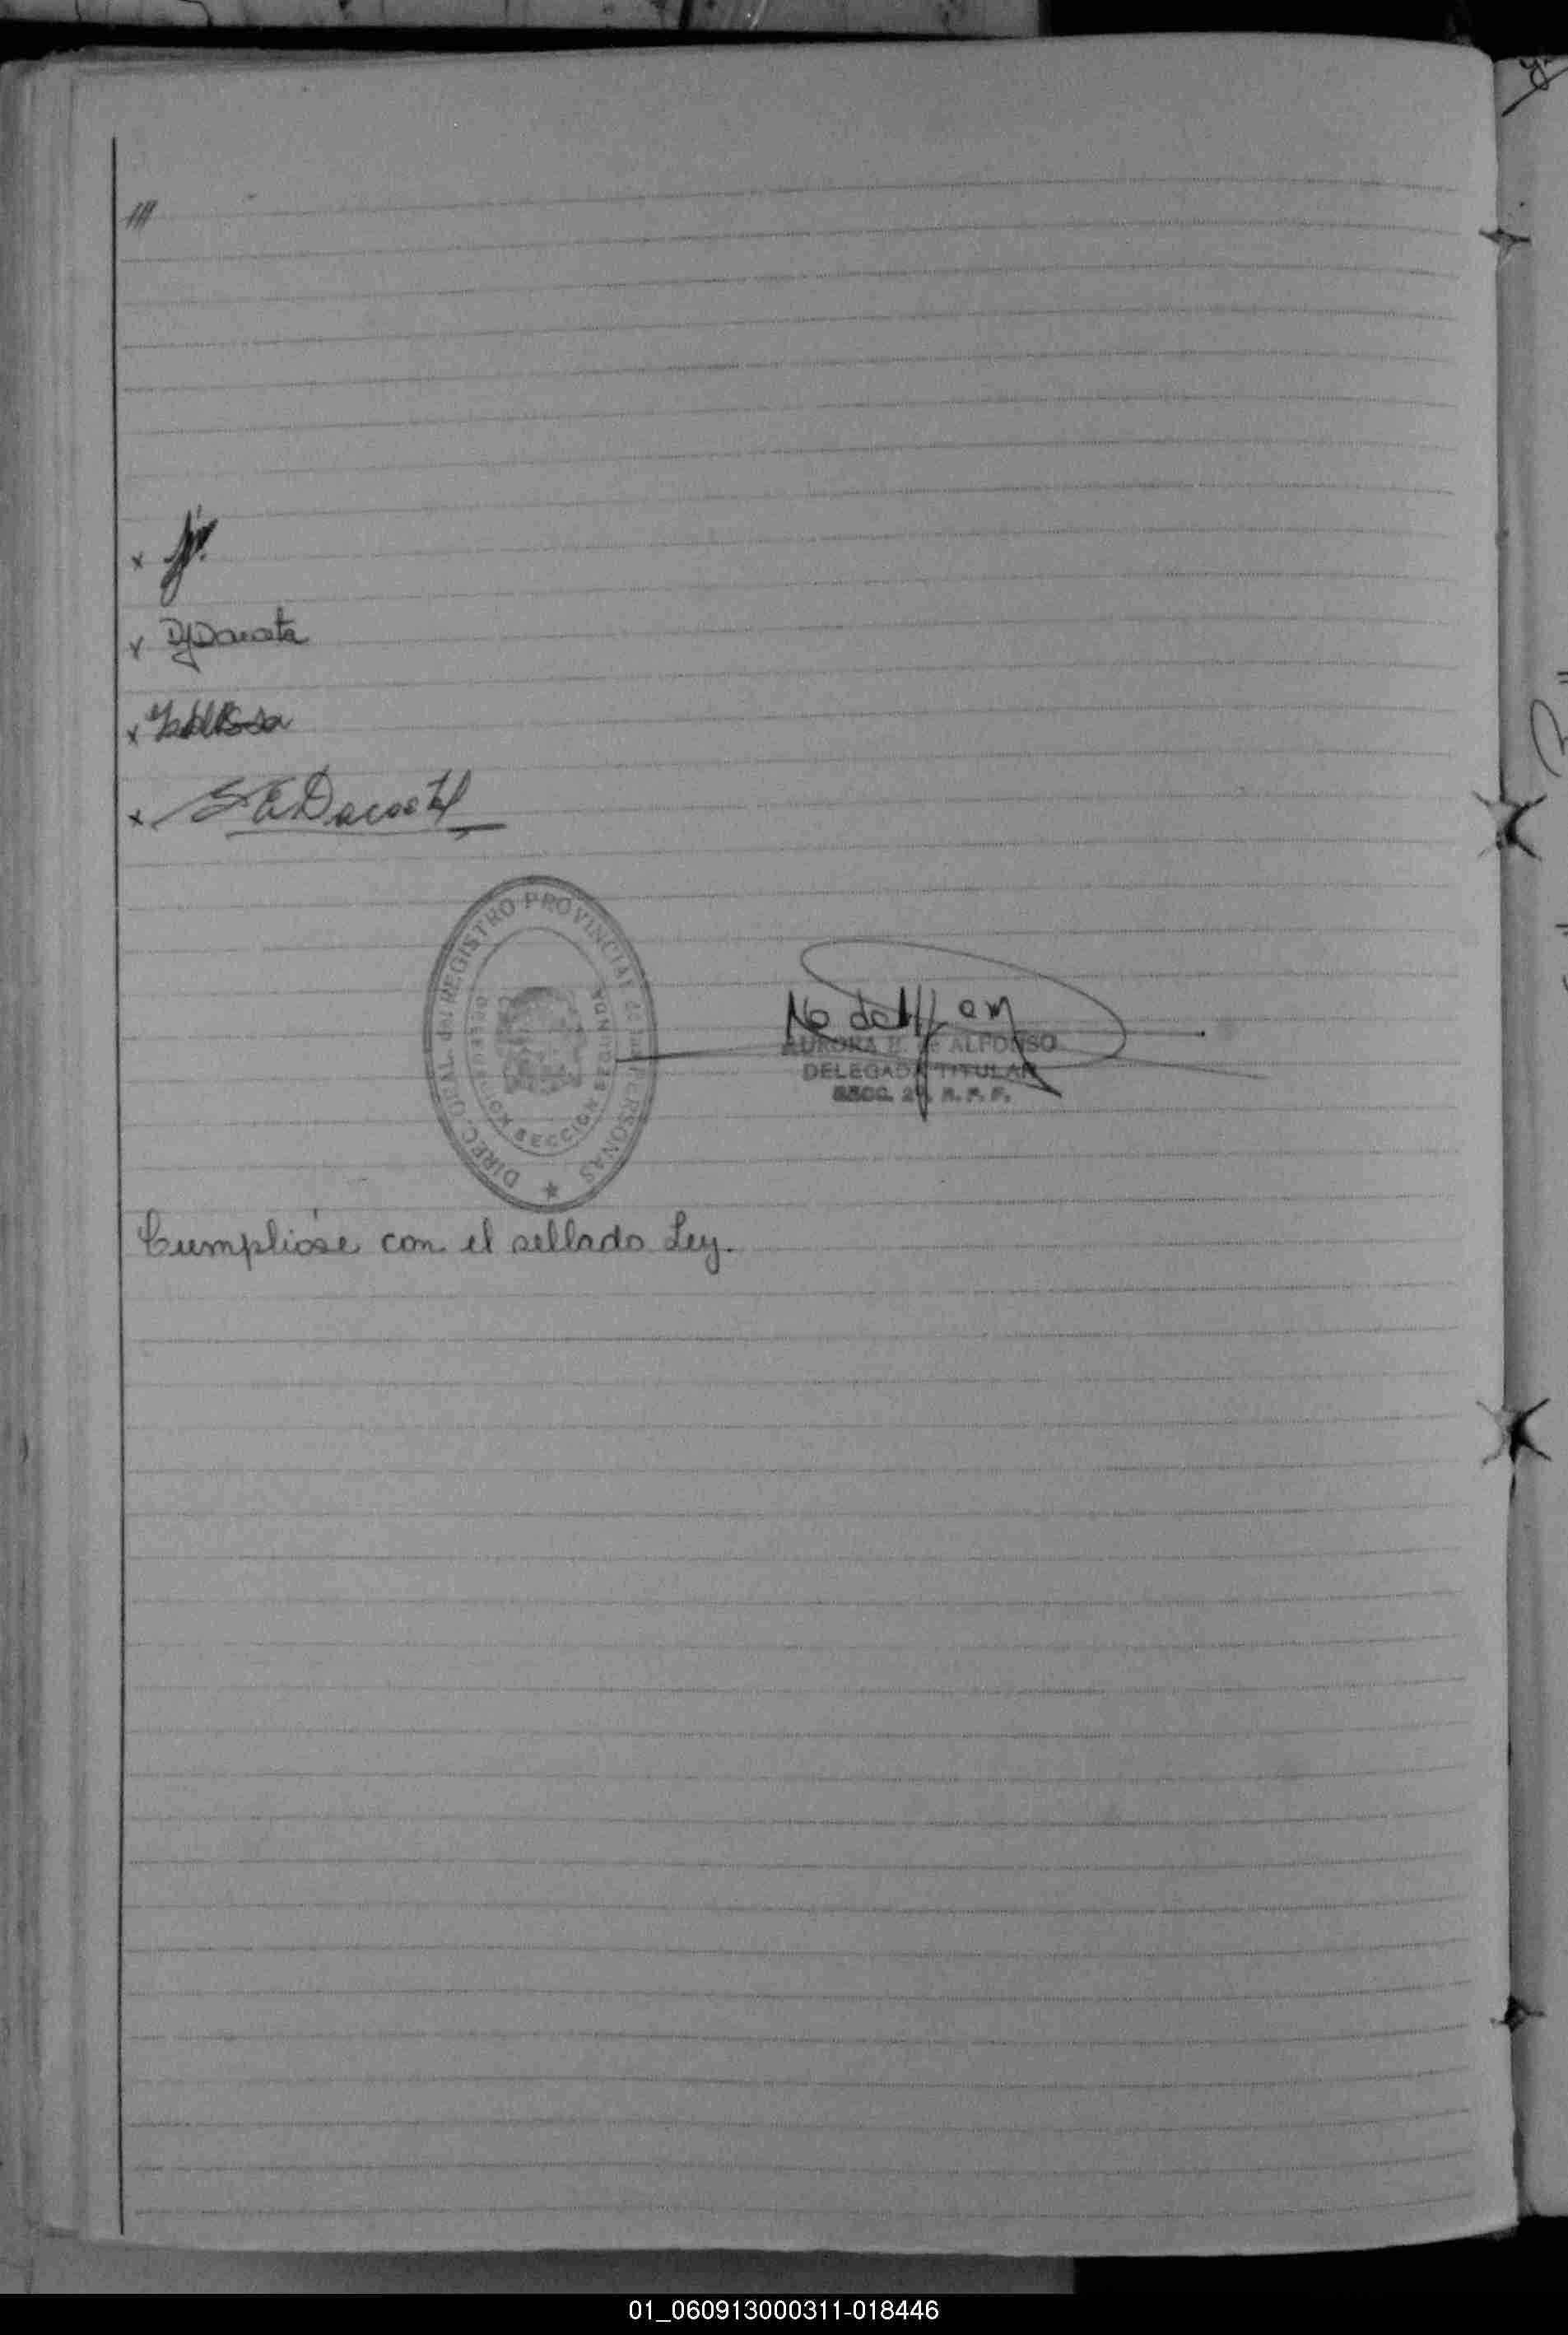 ////
x
x DJDacosta
x
x S E Dacosta
DIREC. GRAL. del REGISTRO PROVINCIAL de las PERSONAS
DELEGACION SECCION SEGUNDA
AURORA E. de ALFONSO
DELEGADA TITULAR
SECC. 2ª. R. P. P.
Cumplióse con el sellado Ley.
01_060913000311-018446